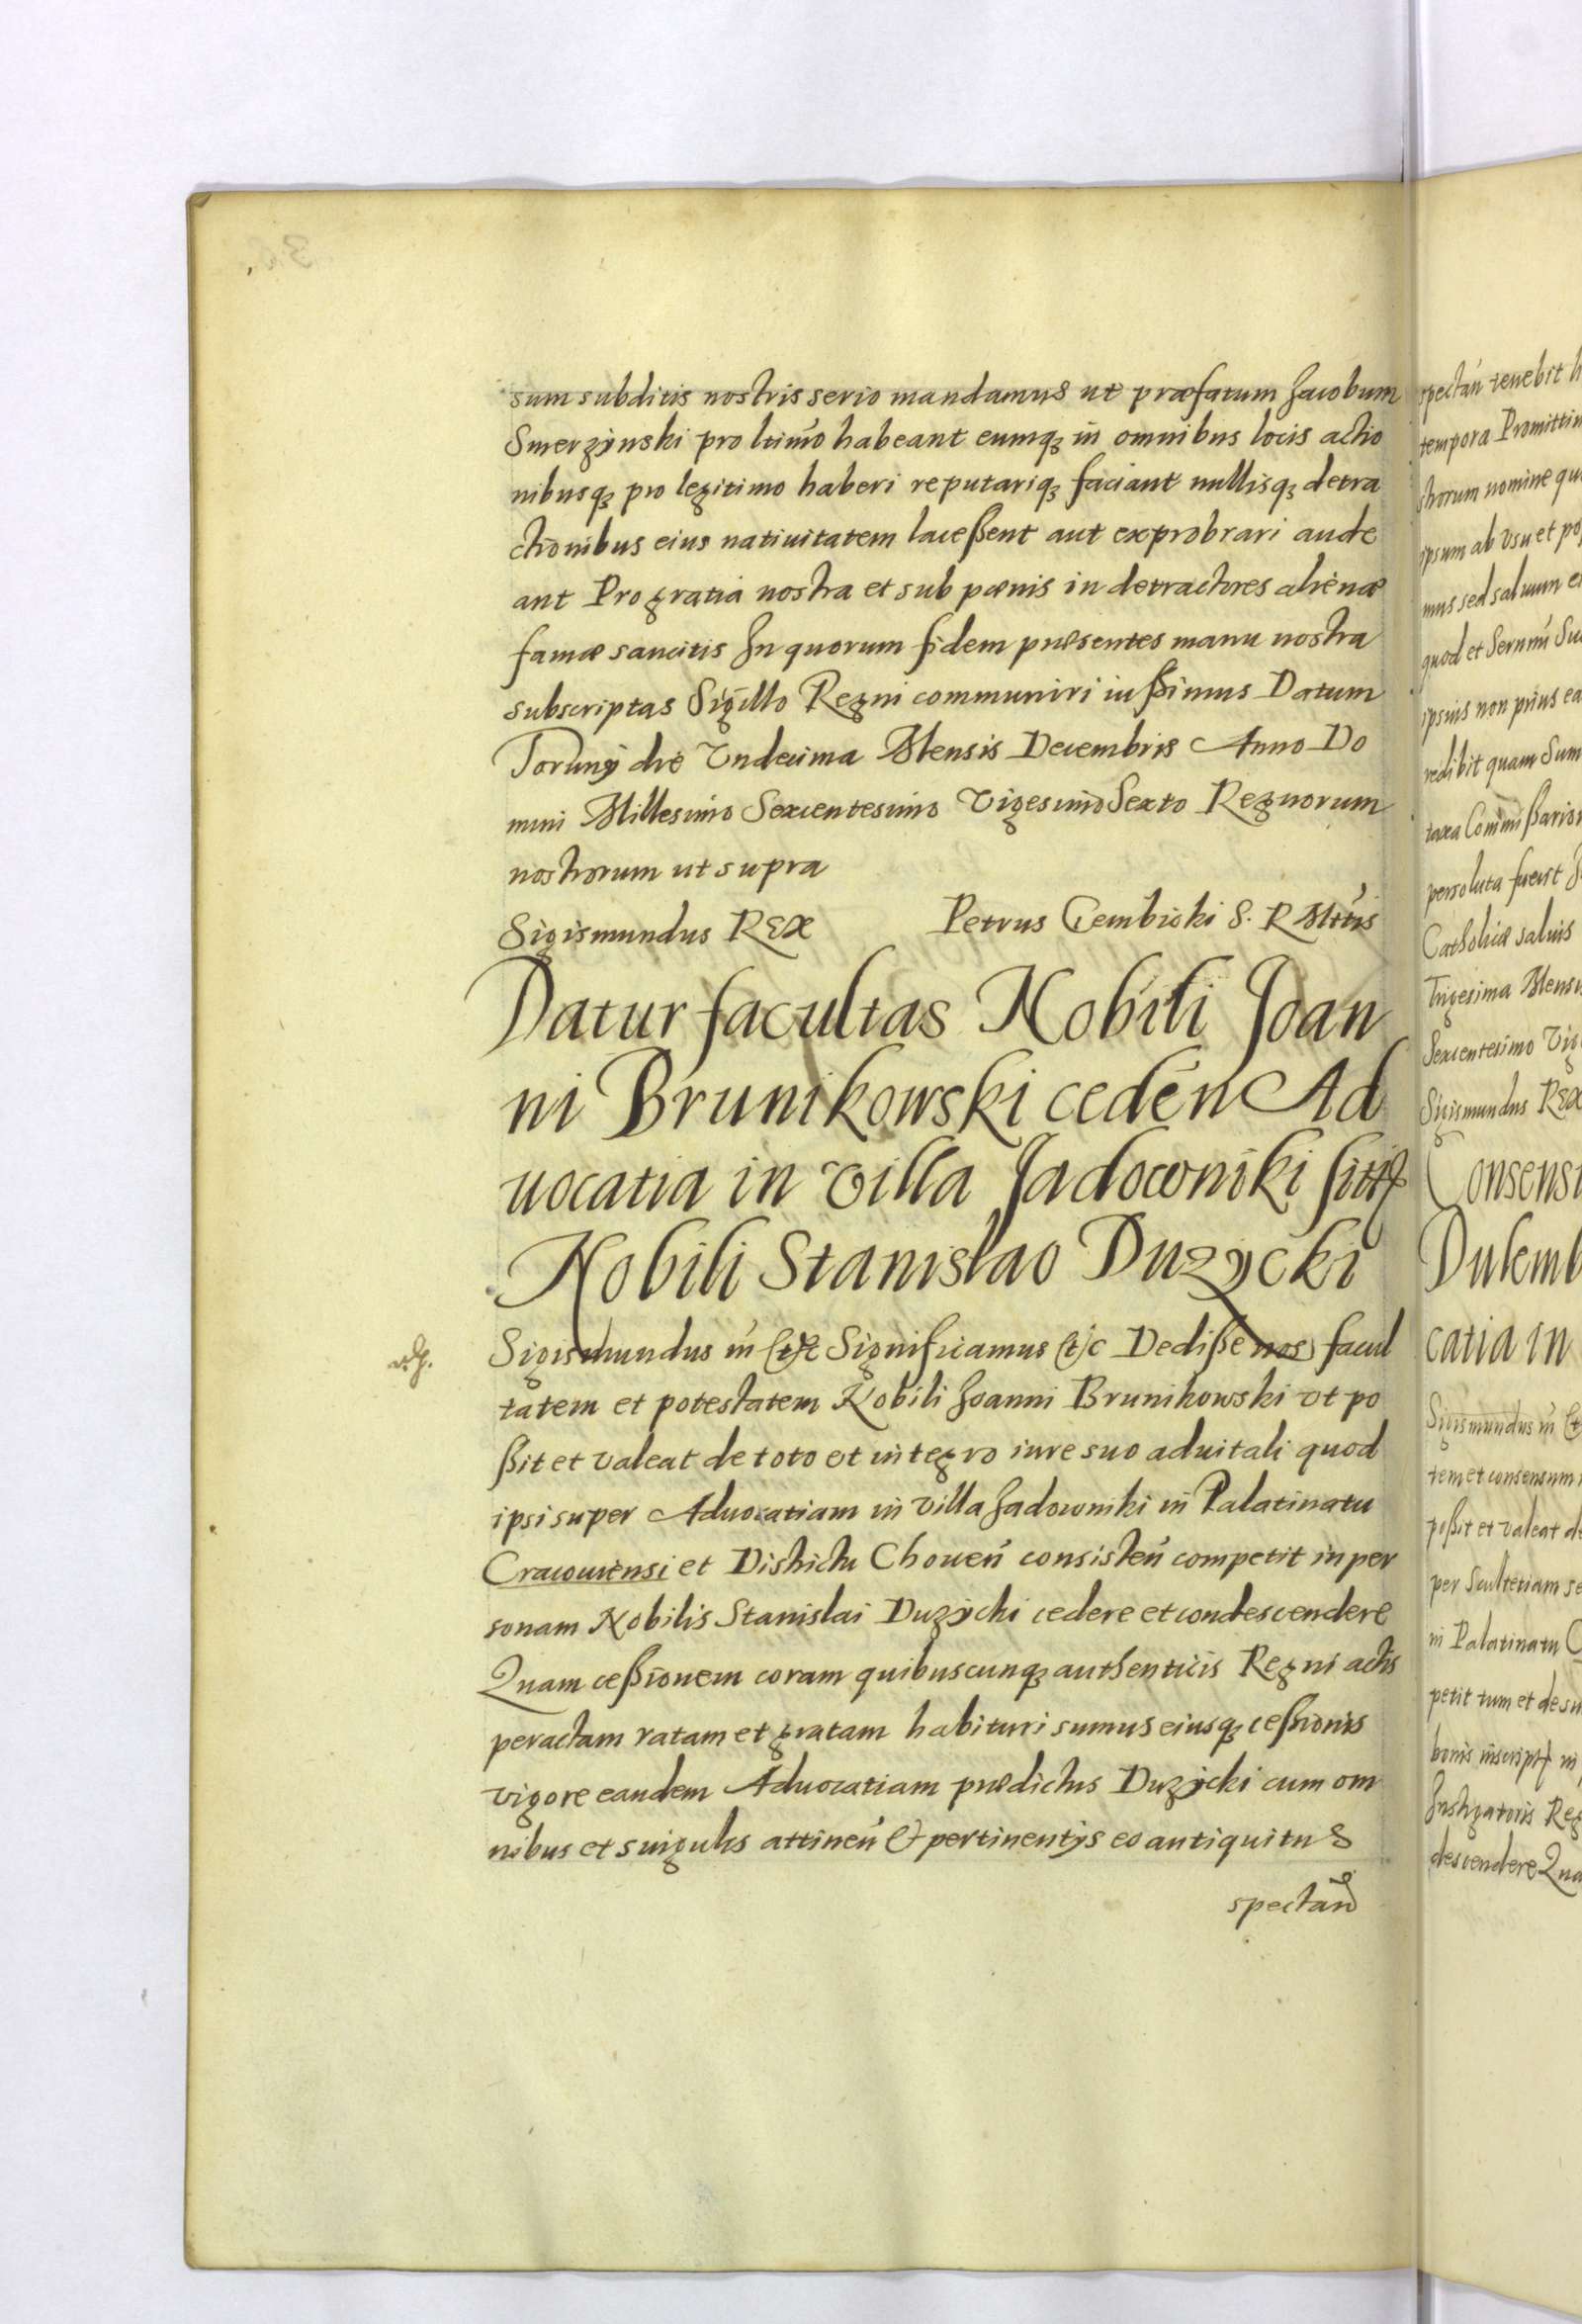 sum subditis nostris serio mandamus ut præfatum Jacobum
Smerzynski pro ltimo habeant eumq; in omnibus locis actio
nibusq; pro legitimo haberi reputariq; faciant nullisq; detra
ctionibus eius natiuitatem lacessent aut exprobrari aude
ant Pro gratia nostra et sub pœnis in detractores alienæ
famæ sancitis In quorum fidem præsentes manu nostra
subscriptas Sigillo Regni communiri iussimus Datum
Toruny die Vndecima Mensis Decembris Anno Do
mini Millesimo Sexcentesimo Vigesimo Sexto Regnorum
nostrorum ut supra
Sigismundus REX Petrus Gembicki S. R Mttis
Datur facultas Nobili Joan
ni Brunikowski ceden Ad
uocatia in villa Jadowniki
Nobili Stanislao Duzycki
Sigismundus III etc Significamus etc Dedisse nos facul
tatem et potestatem Nobili Joanni Brunikowski vt po
ssit et valeat de toto et integro iure suo aduitali quod
ipsi super Aduocatiam in villa Jadowniki in Palatinatu
Cracouiensi et Districtu Chouen consisten competit in per
sonam Nobilis Stanislai Duzycki cedere et condescendere
Quam cessionem coram quibuscunq; authenticis Regni actis
peractam ratam et gratam habituri sumus eiusq; cessionis
vigore eandem Aduocatiam prædictus Duzycki cum om
nibus et singulis attinen & pertinentijs eo antiquitus
spectan
spectan tenebit
tempora
strorum nomine
ipsum ab vsu et
mus sed saluum
quod et
ipsius non prius
redibit quam
taxa
persoluta fuerit
Catholicæ saluis
Trigesima
Sexcentesimo
Sigismundus REX
Dulemb
catia in
Sigismundus III
tem et consensum
possit et valeat
per Scultetiam
in Palatinatu
petit tum et de
bonis
Instigatoris
descendere